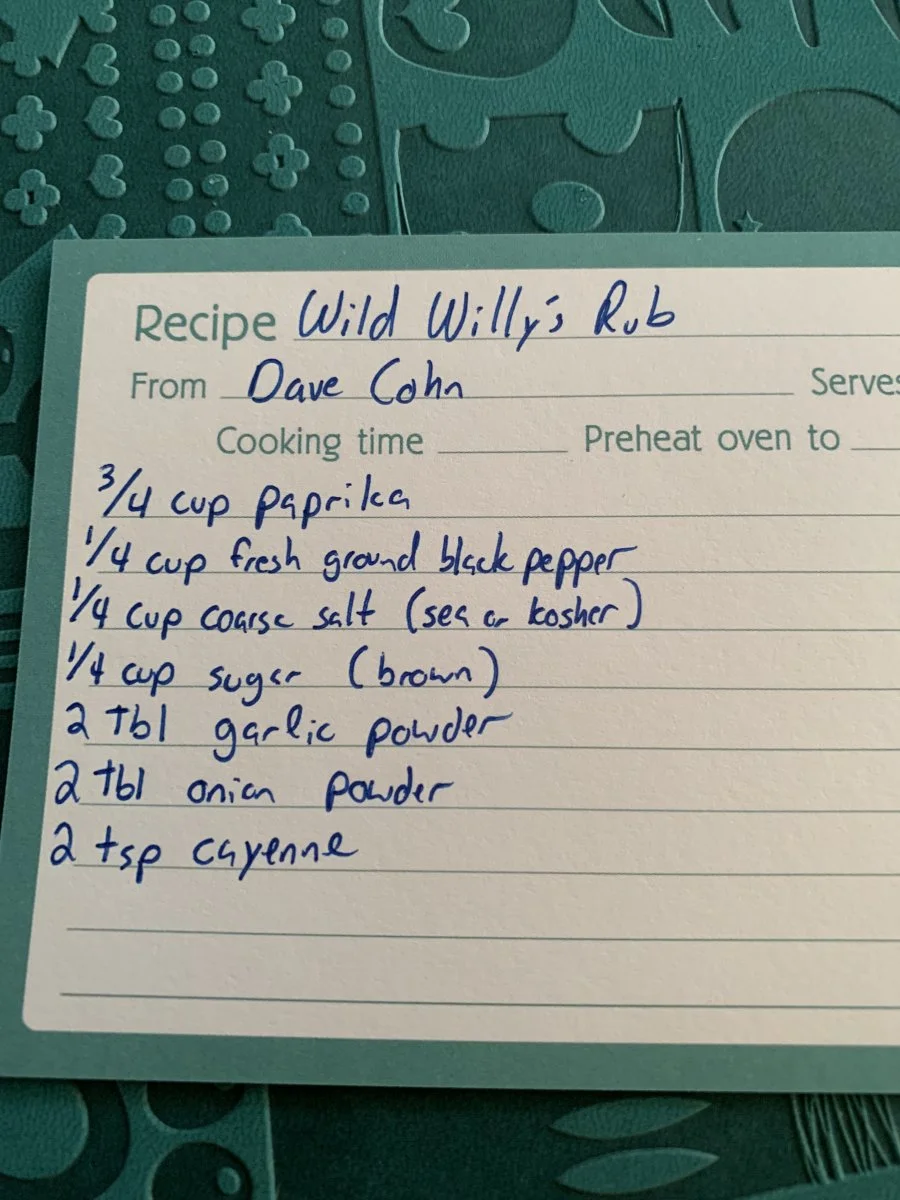 Recipe Wild Willy's Rub
From Dave Cohn Serves
Cooking time Preheat oven to
3/4 cup paprika
1/4 cup fresh ground black pepper
1/4 cup coarse salt (sea or kosher)
1/4 cup sugar (brown)
2 tbl garlic powder
2 tbl onion powder
2 tsp cayenne